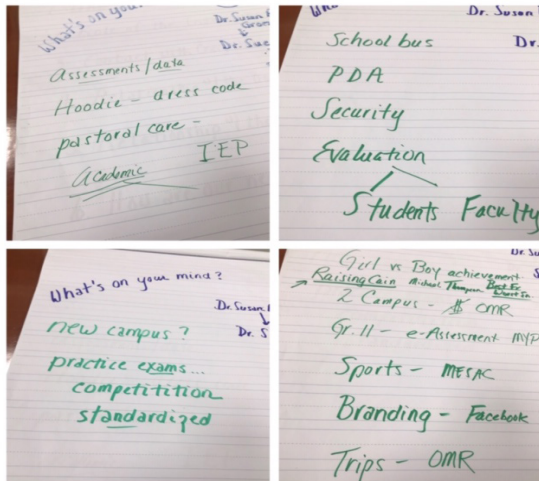 What's on your
Dr. Susan
Dr. Sue
Assessments/data
Hoodie - dress code
pastoral care -
Academic IEP
Dr. Susan
School bus Dr.
PDA
Security
Evaluation
Students Faculty
What's on your mind?
Dr. Susan
Dr. S
new campus?
practice exams...
competitition
standardized
Dr. Su
Girl vs Boy achievement
Raising Cain Michael Thompson Best
2 Campus - $ OMR
Gr. 11 - e-Assessment MYP
Sports - MESAC
Branding - Facebook
Trips - OMR